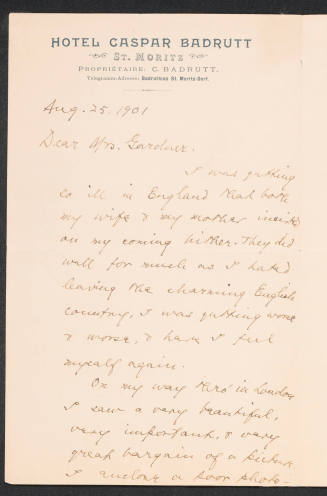 HOTEL CASPAR BADRUTT
ST. MORITZ
PROPRIÉTAIRE: C. BADRUTT.
Telegramm-Adresse: Badruttcas St. Moritz-Dorf.
Aug. 25. 1901
Dear Mrs. Gardner.
I was getting
so ill in England that both
my wife & my mother insisted
on my coming hither. They did
well for much as I hated
leaving the charming English
country, I was getting worse
& worse, & here I feel
myself again.
On my way thro' in London
I saw a very beautiful,
very important, & very
great bargain of a picture.
I enclose a poor photo-